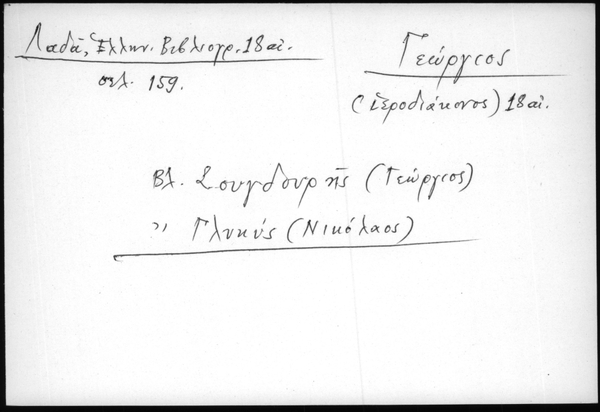 Λαδᾶ, Ἑλλην. Βιβλιογρ. 18 αἰ.
σελ. 159.
Γεώργιος
(ἱεροδιάκονος) 18 αἰ.
Βλ. Σουγδουρῆς (Γεώργιος)
〃 Γλυκύς (Νικόλαος)